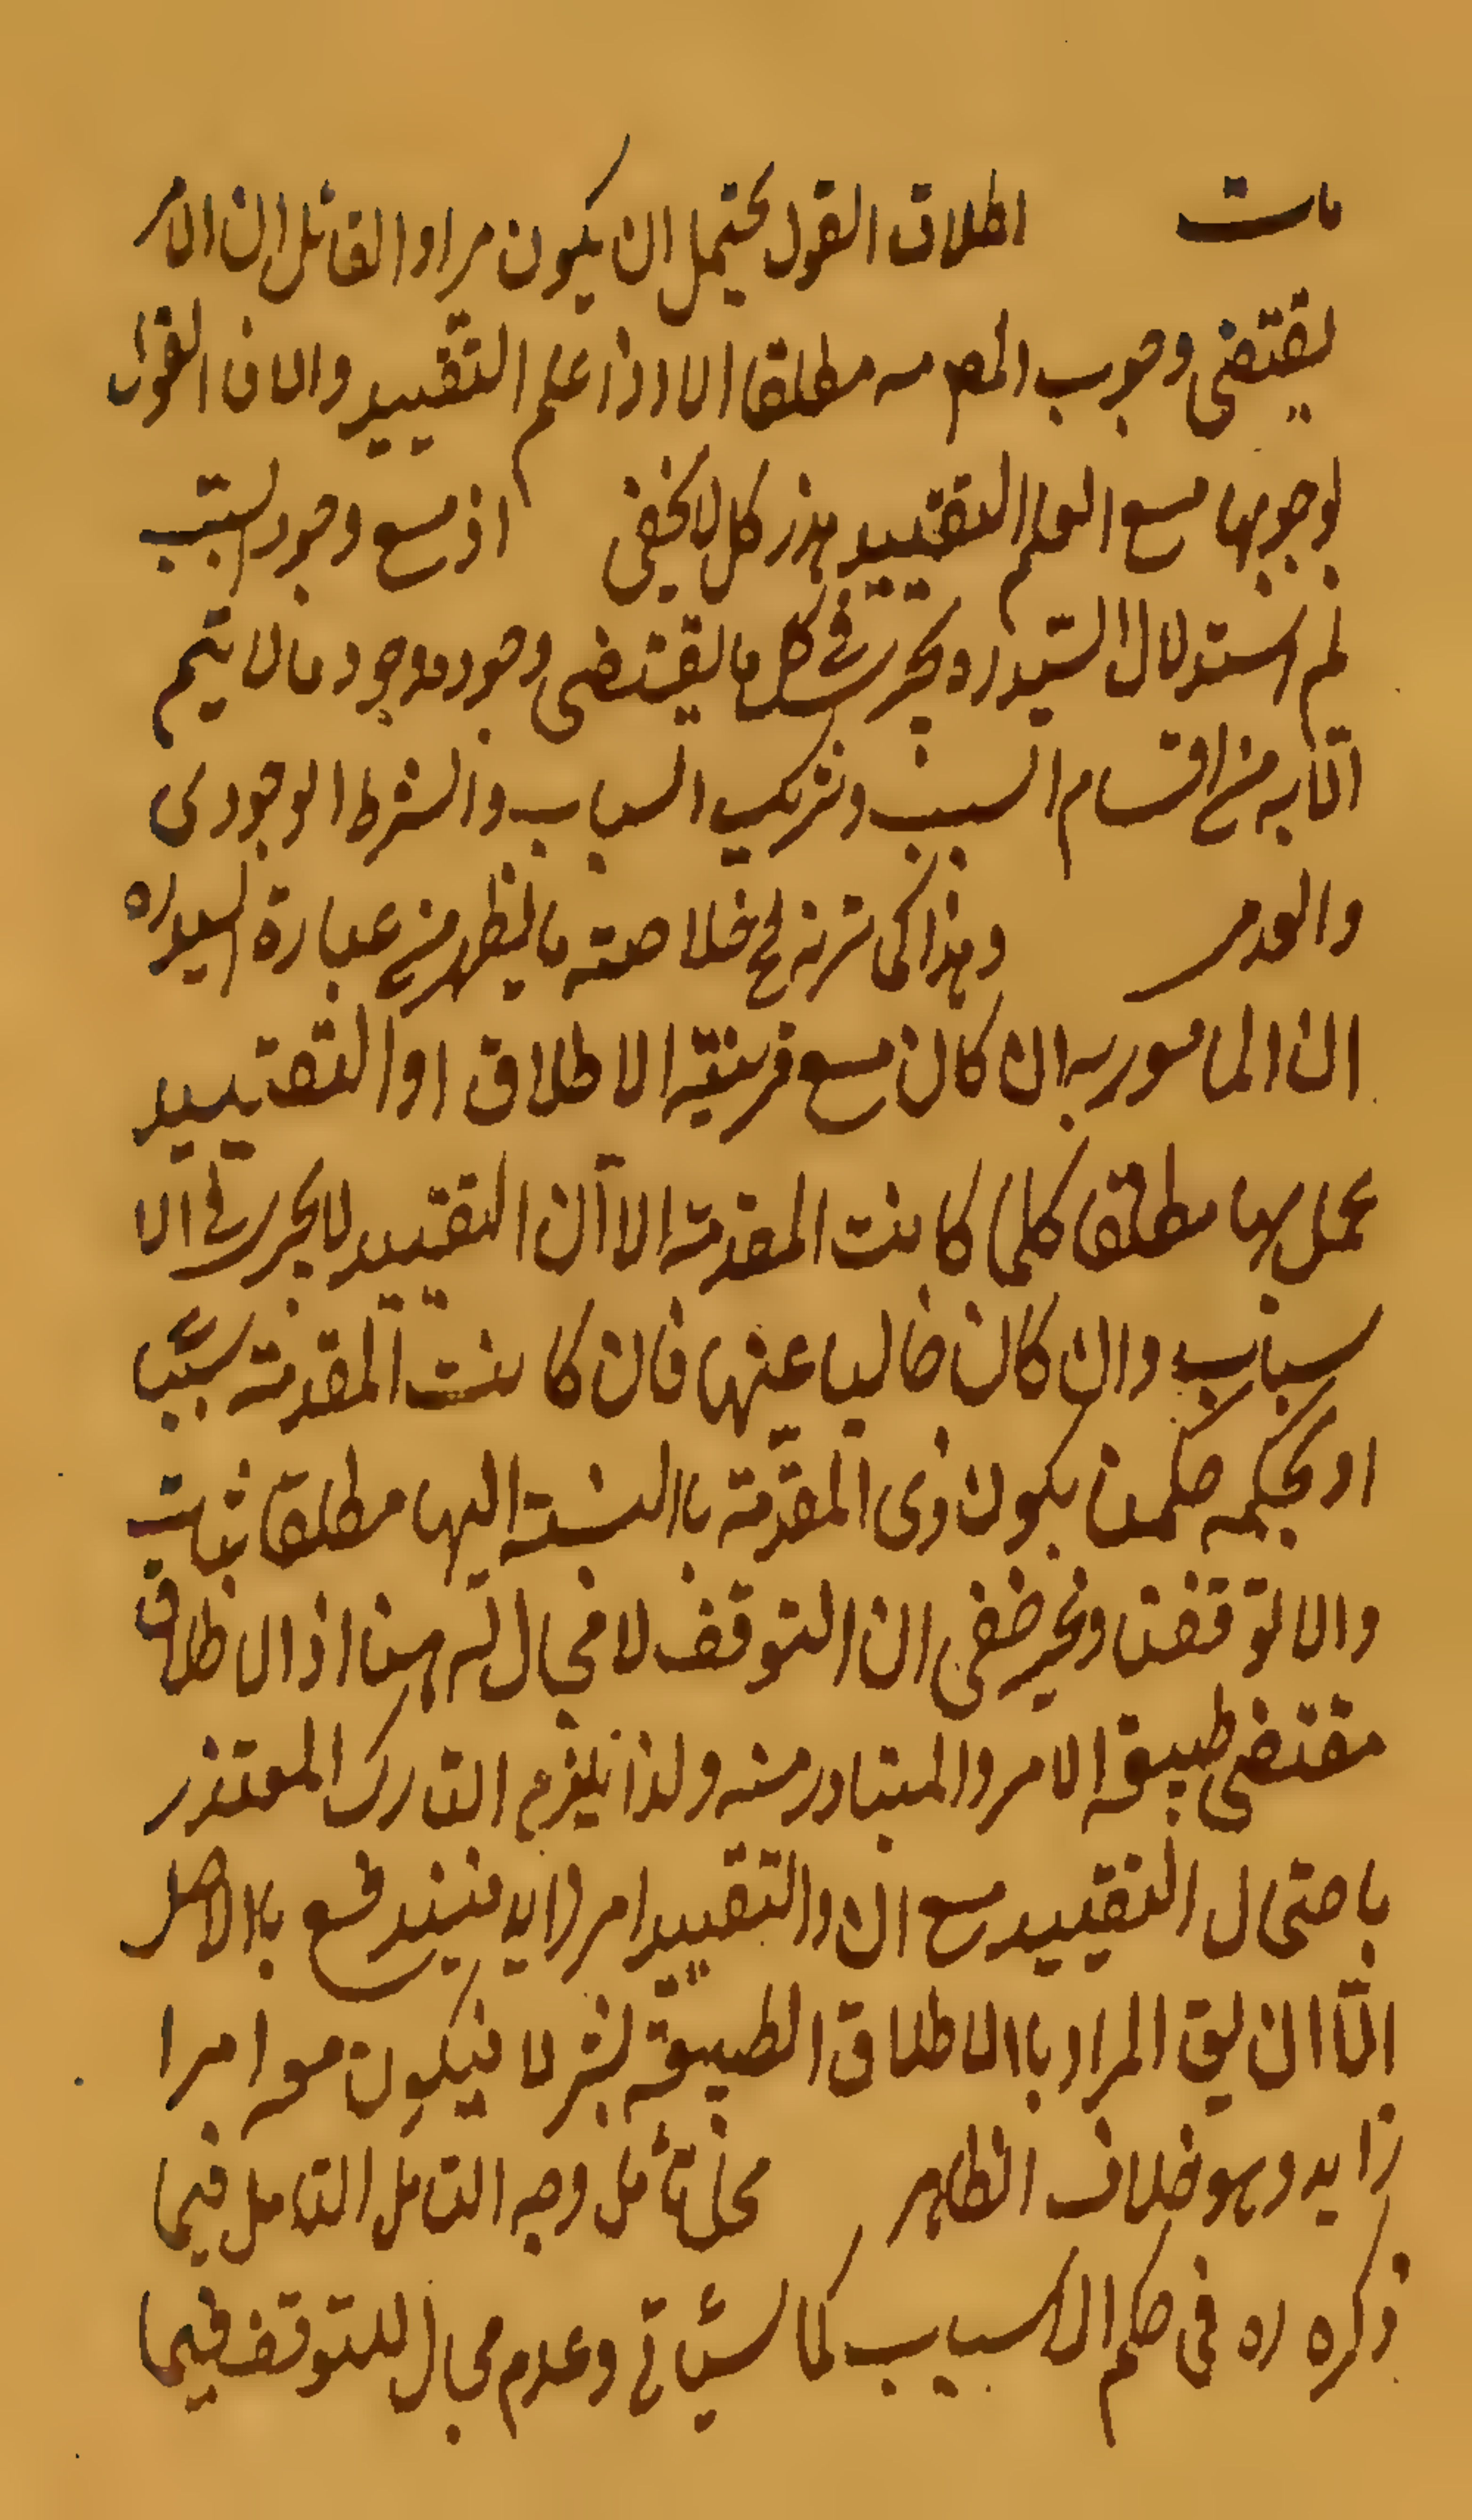 مات اطلاق القول يحتمل ان يكون مراد القائل ان الامر
يقتضى وجوب المقدمه مطلقا الا اذا علم التقييد والا فالقول
لوجوبها مع العلم التقييد هذر كما لا يخفى اذ مع وجود السبب
لم استدلال السيد ره يجرى فى كل ما يقتضى وجوده وجود ما لا يتم
الا به من اقسام السبب وتركيب السباب والشرط الوجودى
والعدمى وهذا كما ترى خلاصة ما يظهر من عبارة السيد ره
ان المامور به ان كان مع قرينة الاطلاق او التقييد
عمل بها مطلقا كلما كانت المقدمة الا ان التقييد لا يجرى فى الا
سباب وان كان خاليا عنها فان كانت المقدمة سببا
او بحكمه حكمنا بكون ذى المقدمة باالنسبة اليها مطلقا بتاتا
والا توقفنا وغير خفى ان التوقف لا مجال له هنا اذ الاطلاق
مقتضى طبيعة الامر والمتبادر منه ولذا يلزم التدارك المعتذر
باحتمال التقييد مع ان والتقييد امر زايد فيندفع بالاصل
الا ان يق المراد باالاطلاق الطبيعة بشرط لا فيكون هو امرا
زايد وهو خلاف الظاهر محل تامل وجه التامل التامل فيما
ذكره ره فى حكم الاسباب كما سياتى وعدم مجال للتوقف فيما